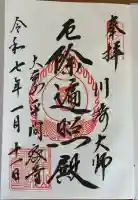 奉拝
川崎大師
厄除遍照殿
大本山平間教寺
令和七年一月十一日